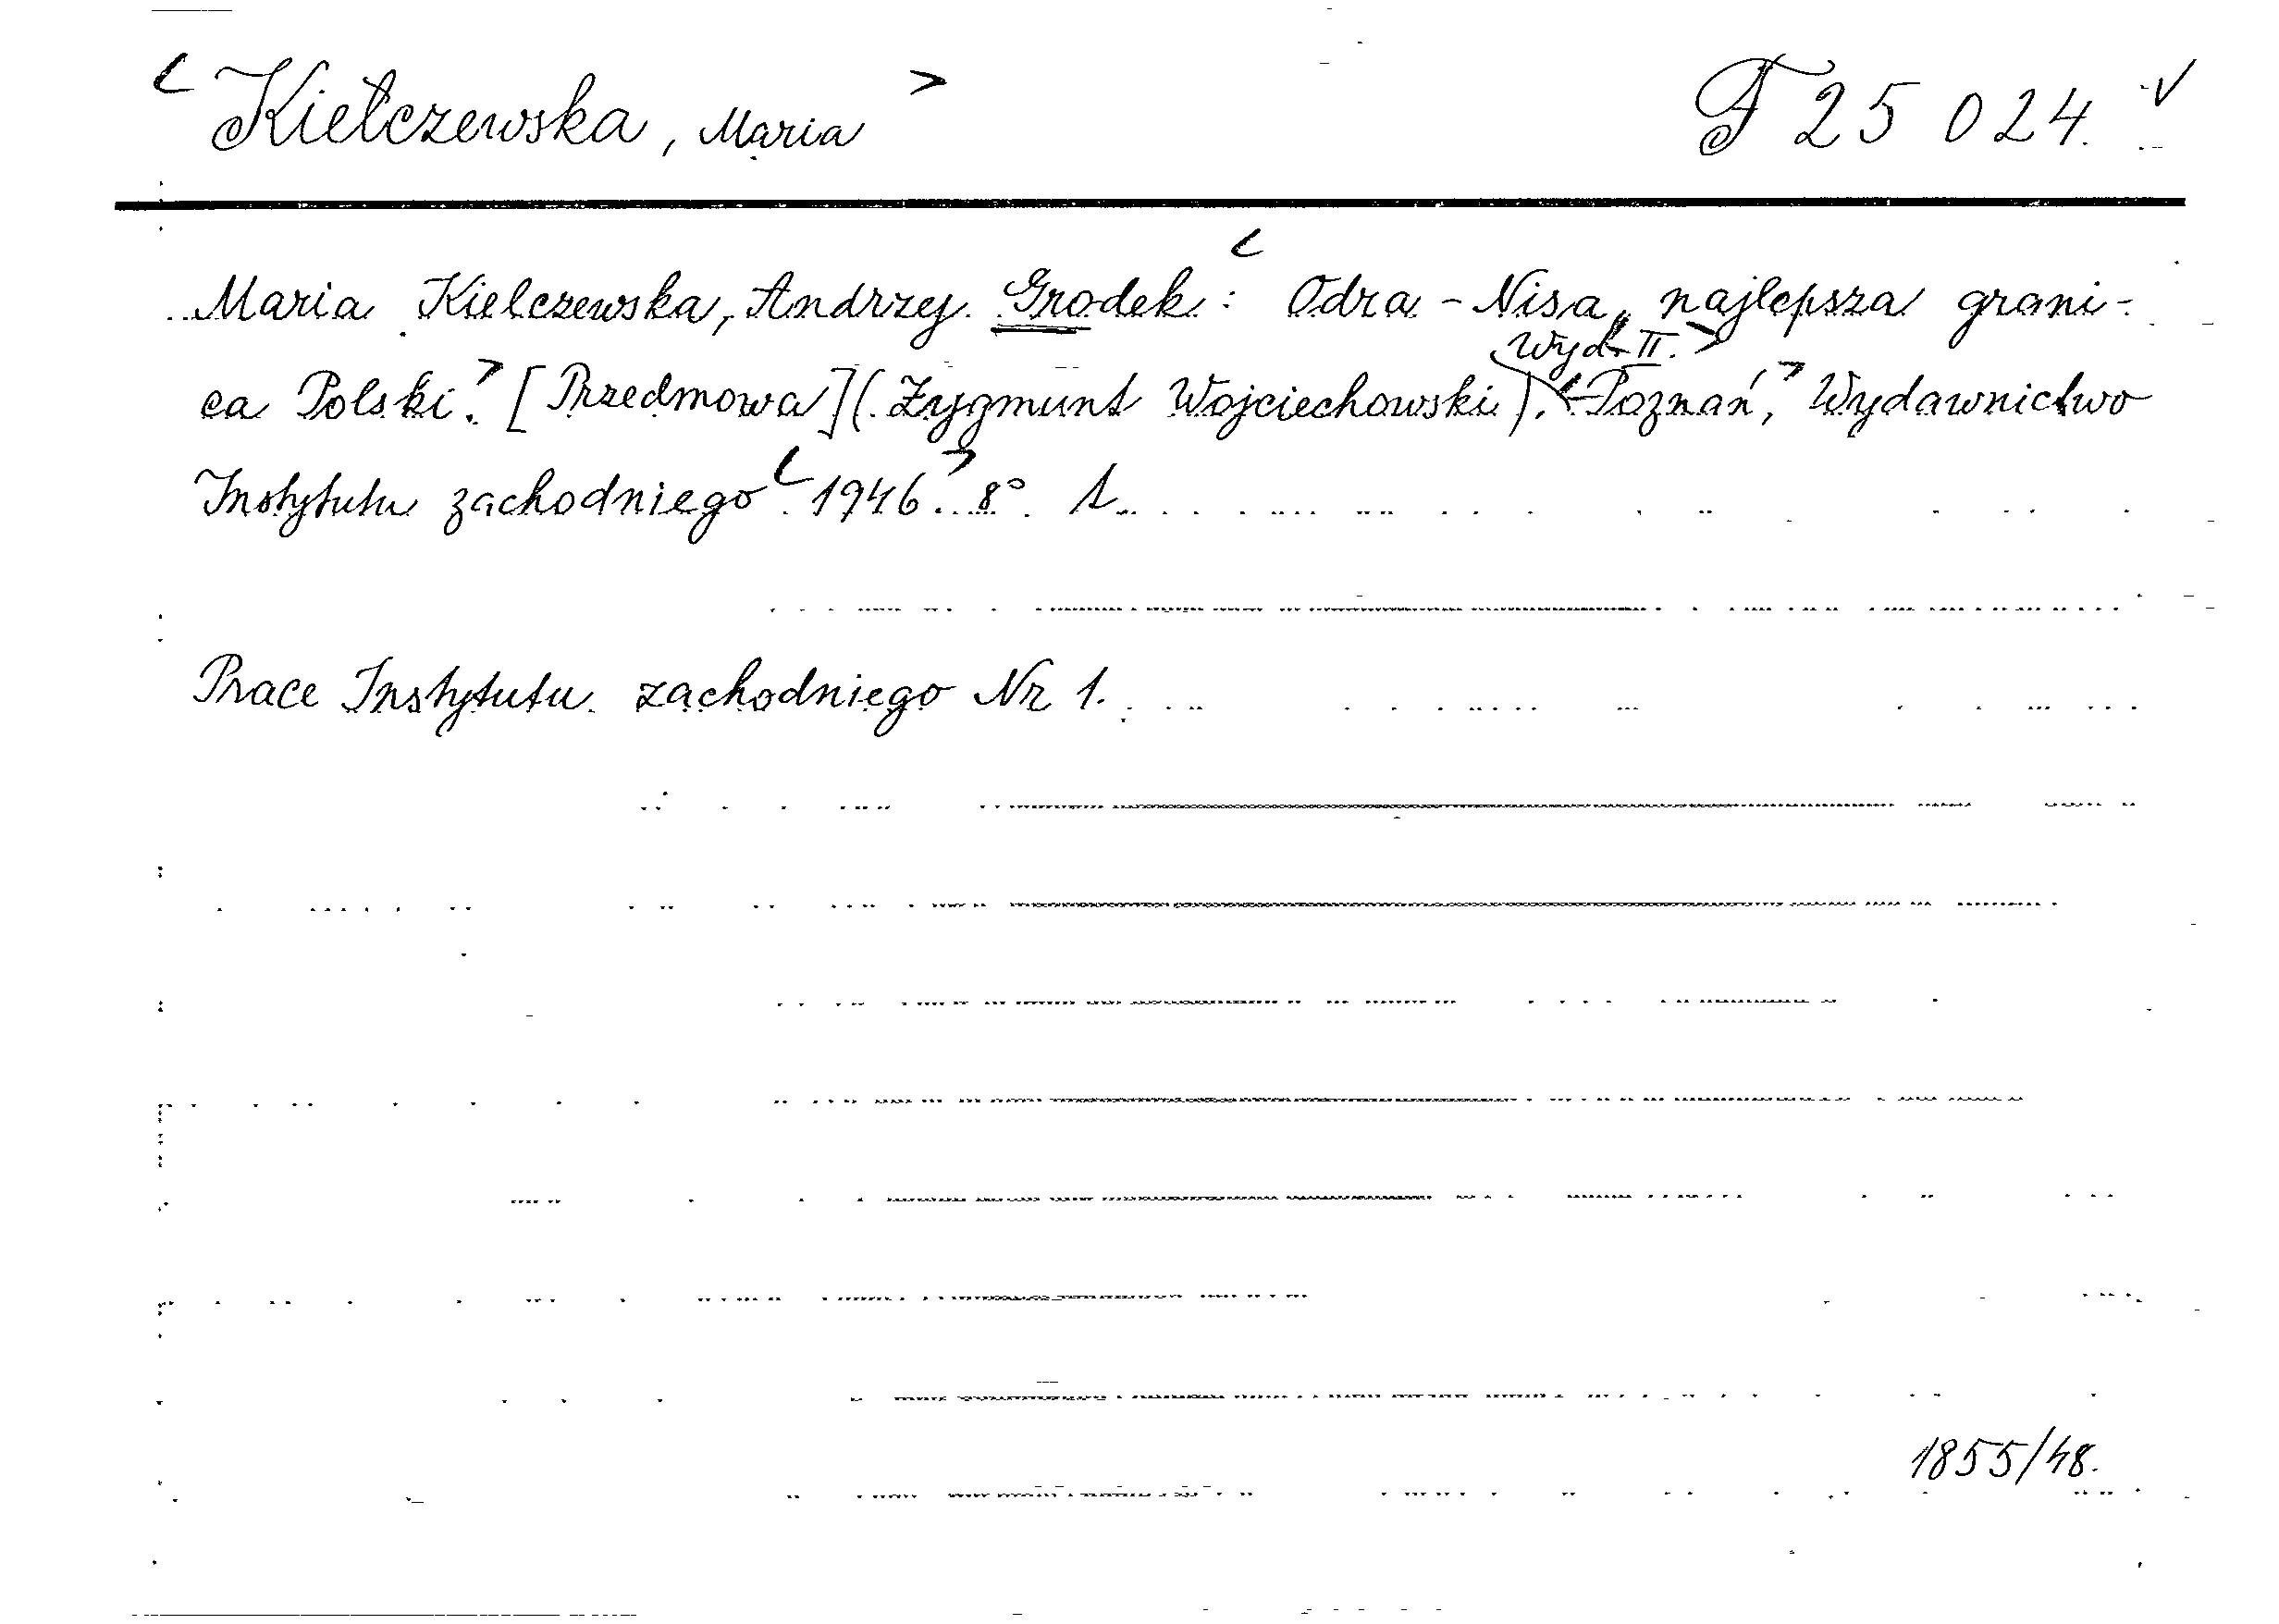 < Kiełczewska, Maria > F 25 024. √
Maria Kielczewska, Andrzej Grodek: < Odra - Nisa, najlepsza grani-
Wyd. II. >
ca Polski. > [Przedmowa] (Zygmunt Wojciechowski). < Poznań, > Wydawnictwo
Instytutu zachodniego < 1946. > 8° 1
Prace Instytutu zachodniego Nr 1.
1855/48.